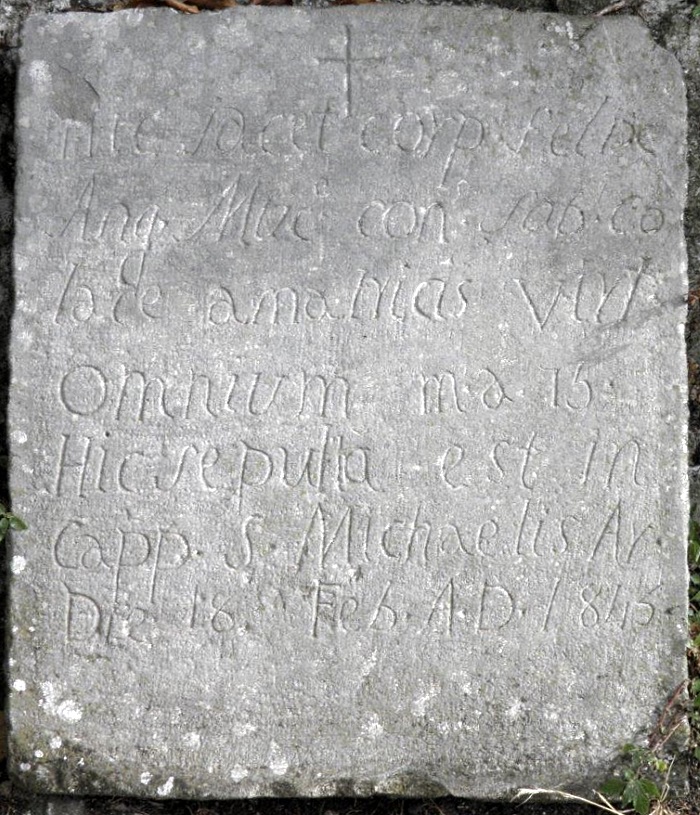 Hic Jacet corp. Felice
Ang. Muci con. Sab. co
lare amatricis virt
Omnium m.a. 15.
Hic sepulta est in
Capp. S. Michaelis Ar.
Die 18. Feb. A.D. 1845.